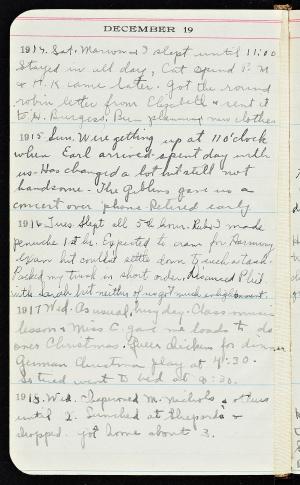 DECEMBER 19
1914. Sat. Marion & I slept until 11:00
Stayed in all day, Cat spend P. M
& H. K came later. Got the round
robin letter from Elizabeth & sent it
to H. Burgess. Been planning new clothes
1915 Sun. Were getting up at 11 o'clock
when Earl arrived - spent day with
us. Has changed a lot but still not
handsome. - The Goblins gave us a
concert over 'phone. Retired early
1916 Tues. Slept all 5th hour. made
penuche 1st hr. Expected to cram for Harmony
Exam but couldn't settle down to such a task.
Packed my trunk in short order. Discussed Phil
with Sarah but neither of us got much enlightenment.
1917 Wed. As usual, busy day. Class music
lesson & Miss C. gave me loads to do
over Christmas. Queer chicken for dinner
German Christmas play at 4:30.
So tired went to bed at 8:30.
1918. Wed. Chaperoned M. Nichols & others
until 2. Lunched at Shepards &
shopped. got home about 3.